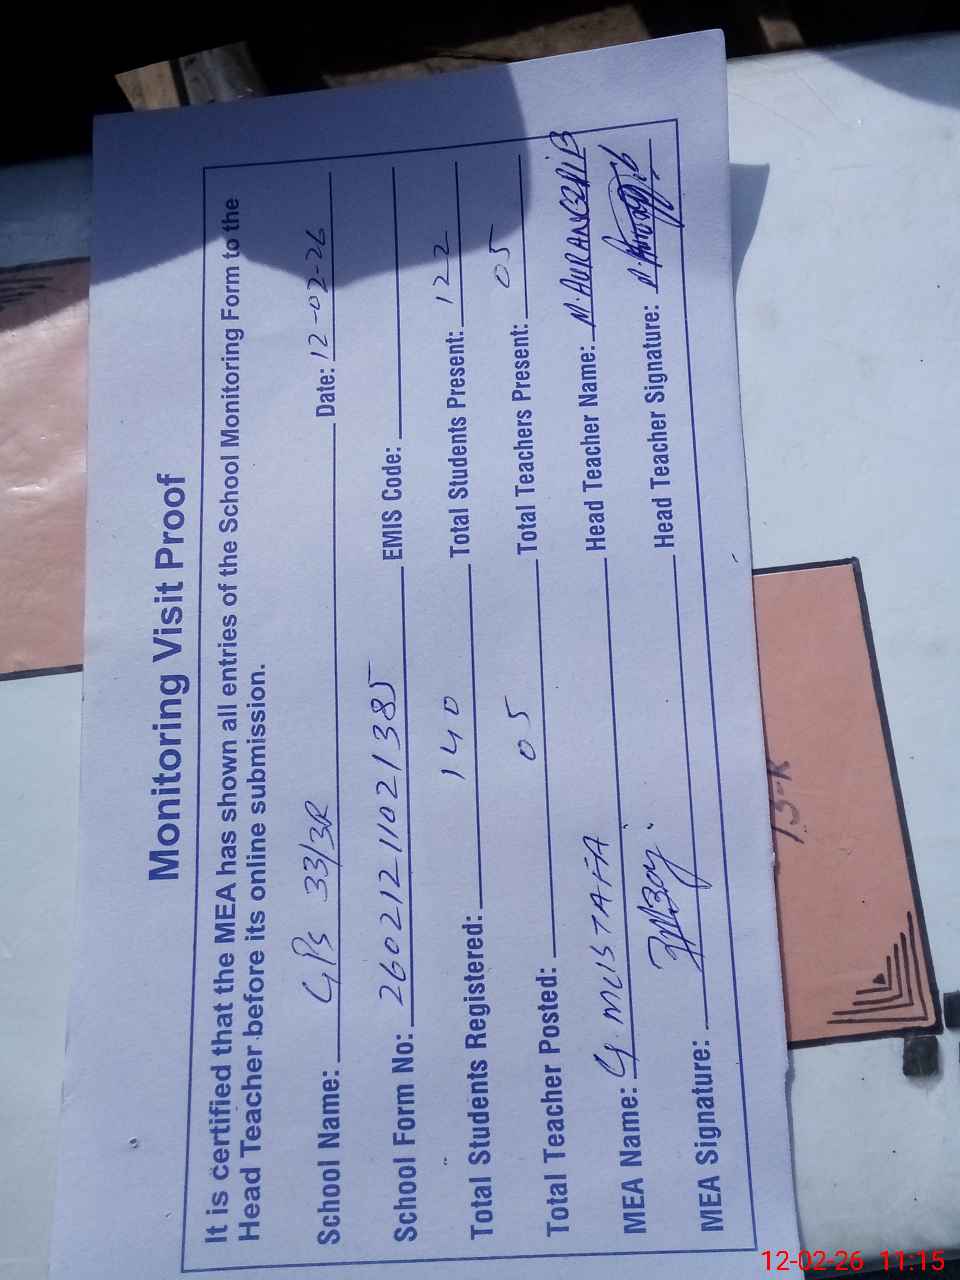 Monitoring Visit Proof
It is certified that the MEA has shown all entries of the School Monitoring Form to the
Head Teacher before its online submission.
School Name: GPS 33/3R Date: 12-02-26
School Form No: 26021211021385 EMIS Code:
Total Students Registered: 140 Total Students Present: 122
Total Teacher Posted: 05 Total Teachers Present: 05
MEA Name: G. MUSTAFA Head Teacher Name: M. AURANGZAIB
MEA Signature: Head Teacher Signature:
12-02-26 11:15